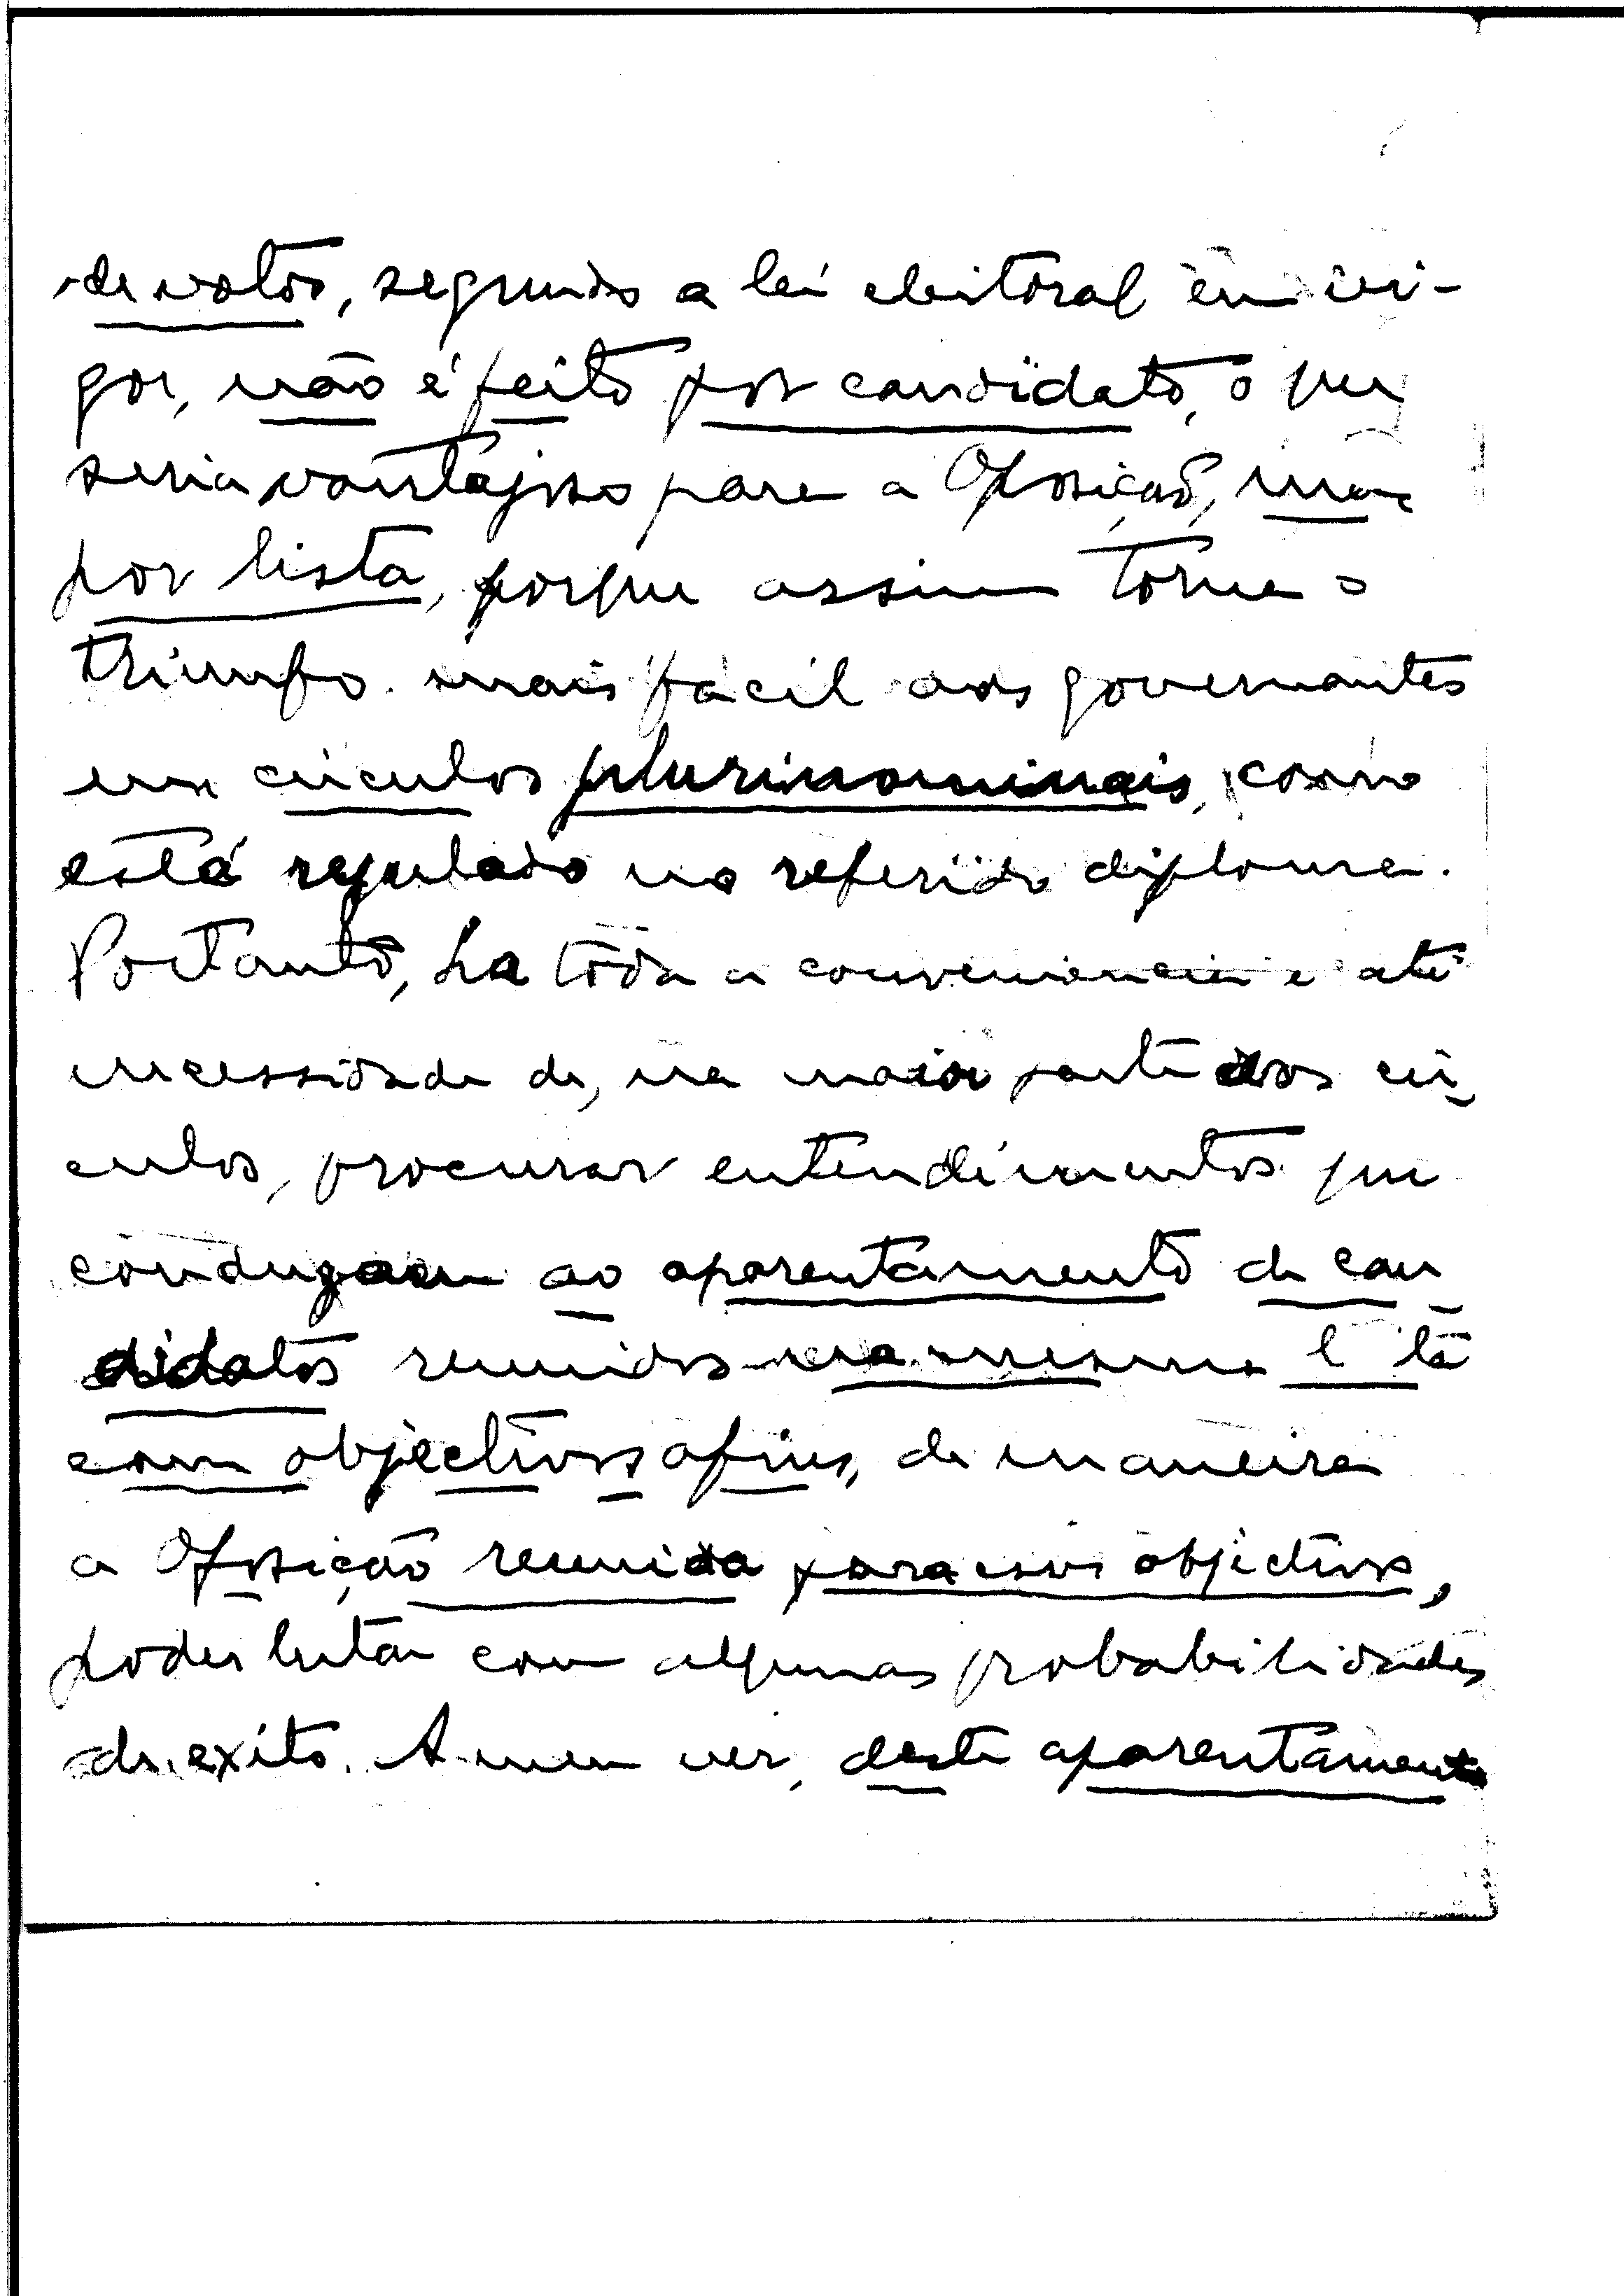 de votos, segundo a lei eleitoral em vi-
gor, não é feito por candidato, o que
seria vantajoso para a Oposição, mas
por lista, porque assim torna o
triunfo mais fácil aos governantes
em circulos plurinominais, como
está regulado no referido diploma.
Portanto, ha tôda a conveniencia e até
necessidade de, na maior parte dos cir-
culos, procurar entendimentos que
conduzam ao aparentamento de can
didatos reunidos na mesma l tа
com objectivos afins, de maneira
a Oposição reunida para esses objectivos,
poder lutar com algumas probabilidades
de exito. A meu ver, deste aparentamento